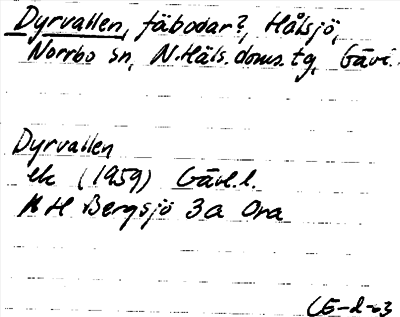 Dyrvallen, fäbodar?, Hålsjö,
Norrbo sn, N.Häls.doms.tg, Gävl.
Dyrvallen
ek (1959) Gävl.l.
RH Bergsjö 3a Ora